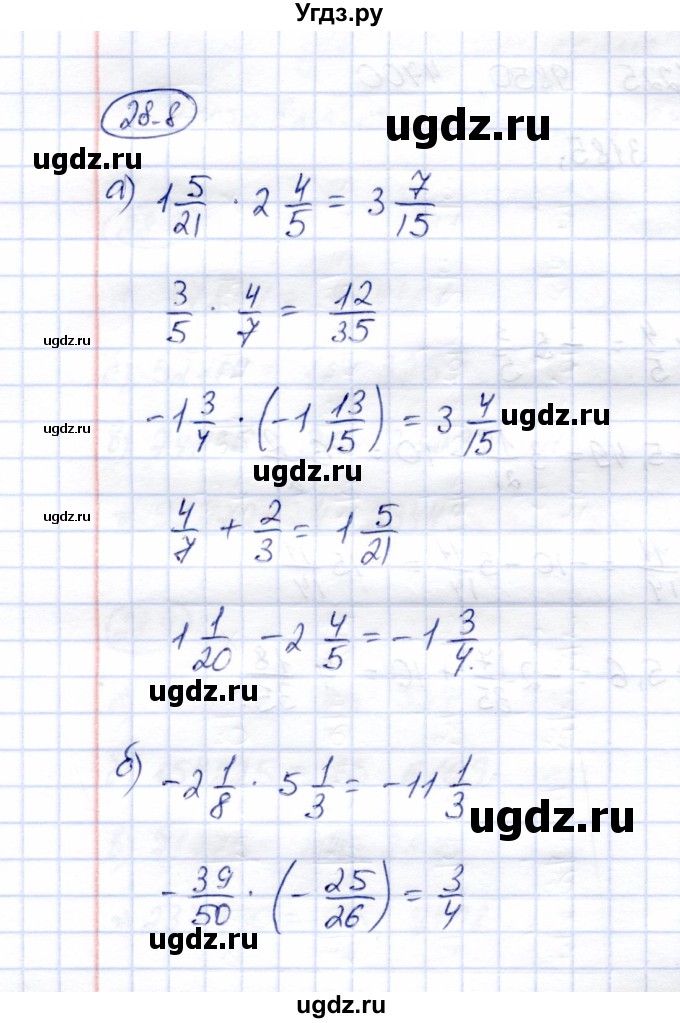 Угдз.ру
225 9850 4700
28.8
ugdz.ru
3185,
ugdz.ru
а) 1 5/21 · 2 4/5 = 3 7/15
ugdz.ru
3/5 · 4/7 = 12/35
ugdz.ru
-1 3/4 · (-1 13/15) = 3 4/15
ugdz.ru
ugdz.ru
ugdz.ru
4/7 + 2/3 = 1 5/21
1 1/20 - 2 4/5 = -1 3/4.
ugdz.ru
б) -2 1/8 · 5 1/3 = -11 1/3
ugdz.ru
-39/50 · (-25/26) = 3/4
ugdz.ru
ugdz.ru